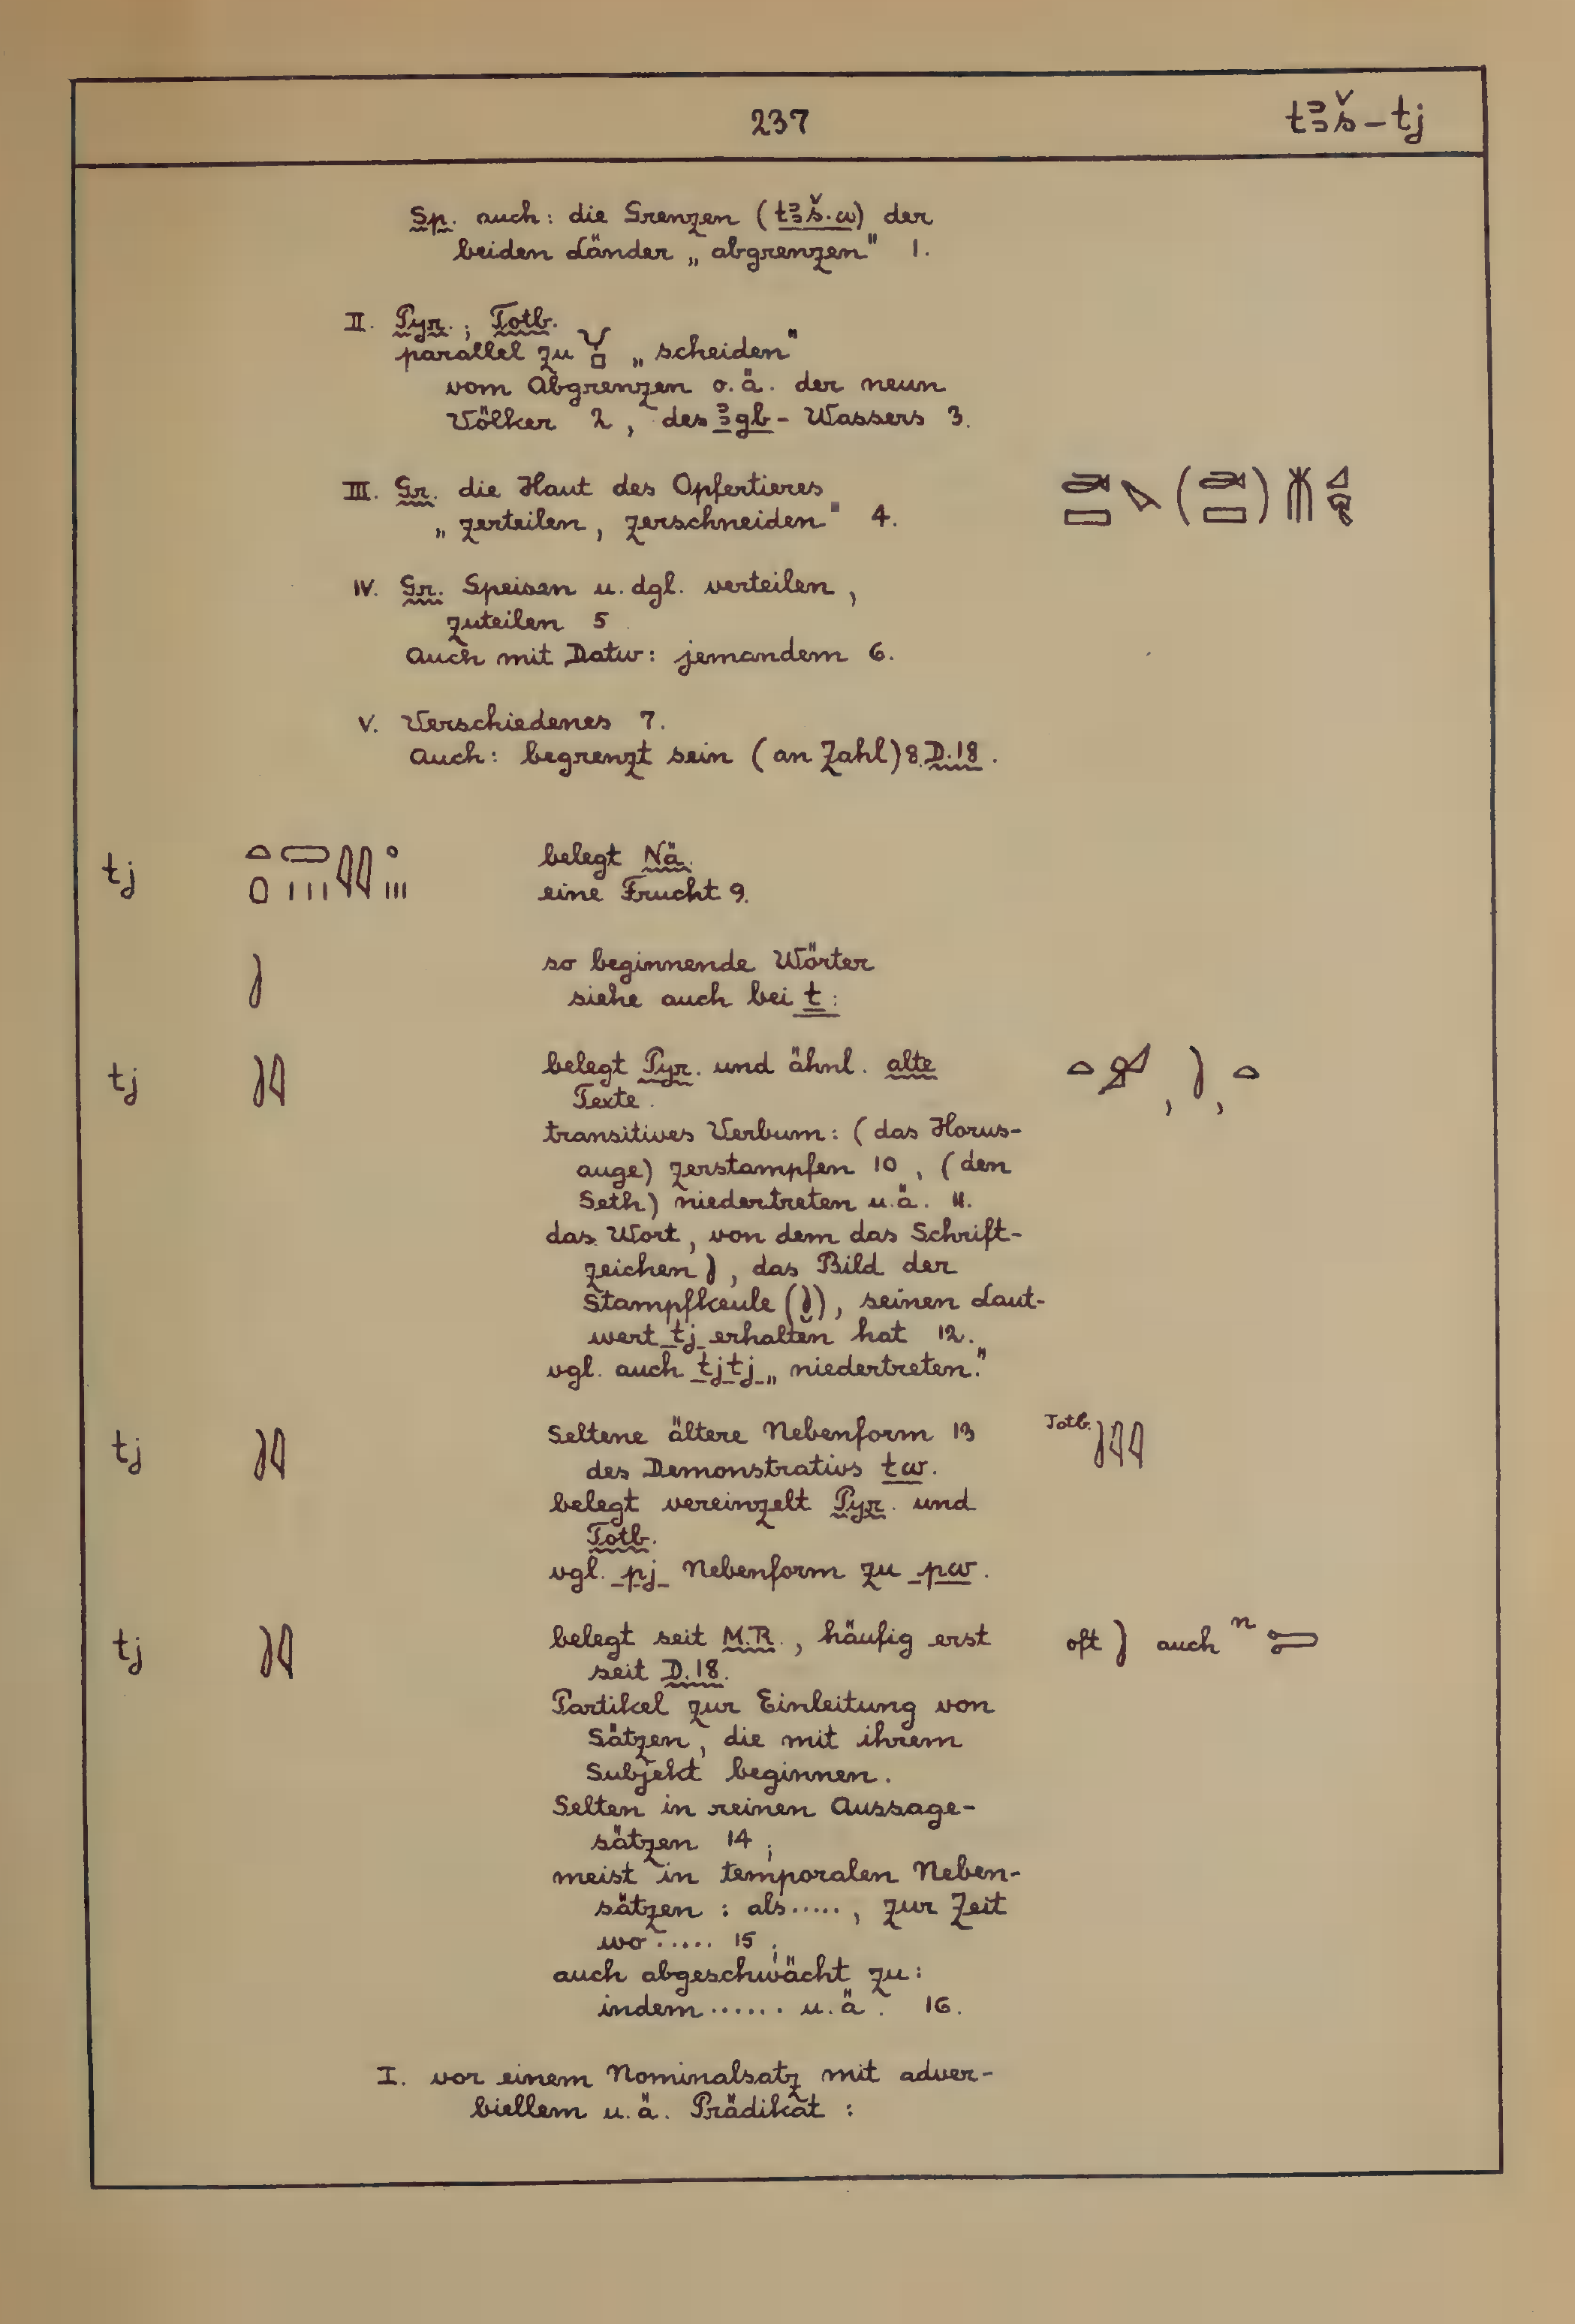 237
tꜣš – tj
Sp. auch: die Grenzen (tꜣš.w) der
beiden Länder „abgrenzen" 1.
II. Pyr.; Totb.
parallel zu „scheiden"
vom Abgrenzen o.ä. der neun
Völker 2, des ꜣgb-Wassers 3.
III. Gr. die Haut des Opfertieres
„zerteilen, zerschneiden" 4.
IV. Gr. Speisen u. dgl. verteilen,
zuteilen 5
Auch mit Dativ: jemandem 6.
V. Verschiedenes 7.
Auch: begrenzt sein (an Zahl) 8 D.18.
tj belegt Nä.
eine Frucht 9.
so beginnende Wörter
siehe auch bei t:
tj belegt Pyr. und ähnl. alte
Texte.
transitives Verbum: (das Horus-
auge) zerstampfen 10, (den
Seth) niedertreten u.ä. 11.
das Wort, von dem das Schrift-
zeichen, das Bild der
Stampfkeule (), seinen Laut-
wert tj erhalten hat 12.
vgl. auch tjtj „niedertreten."
tj Seltene ältere Nebenform 13 Totb.
des Demonstrativs tw.
belegt vereinzelt Pyr. und
Totb.
vgl. pj Nebenform zu pw.
tj belegt seit M.R., häufig erst oft auch n
seit D.18.
Partikel zur Einleitung von
Sätzen, die mit ihrem
Subjekt beginnen.
Selten in reinen Aussage-
sätzen 14;
meist in temporalen Neben-
sätzen: als....., zur Zeit
wo ..... 15;
auch abgeschwächt zu:
indem...... u.ä. 16.
I. vor einem Nominalsatz mit adver-
biellem u.ä. Prädikat: